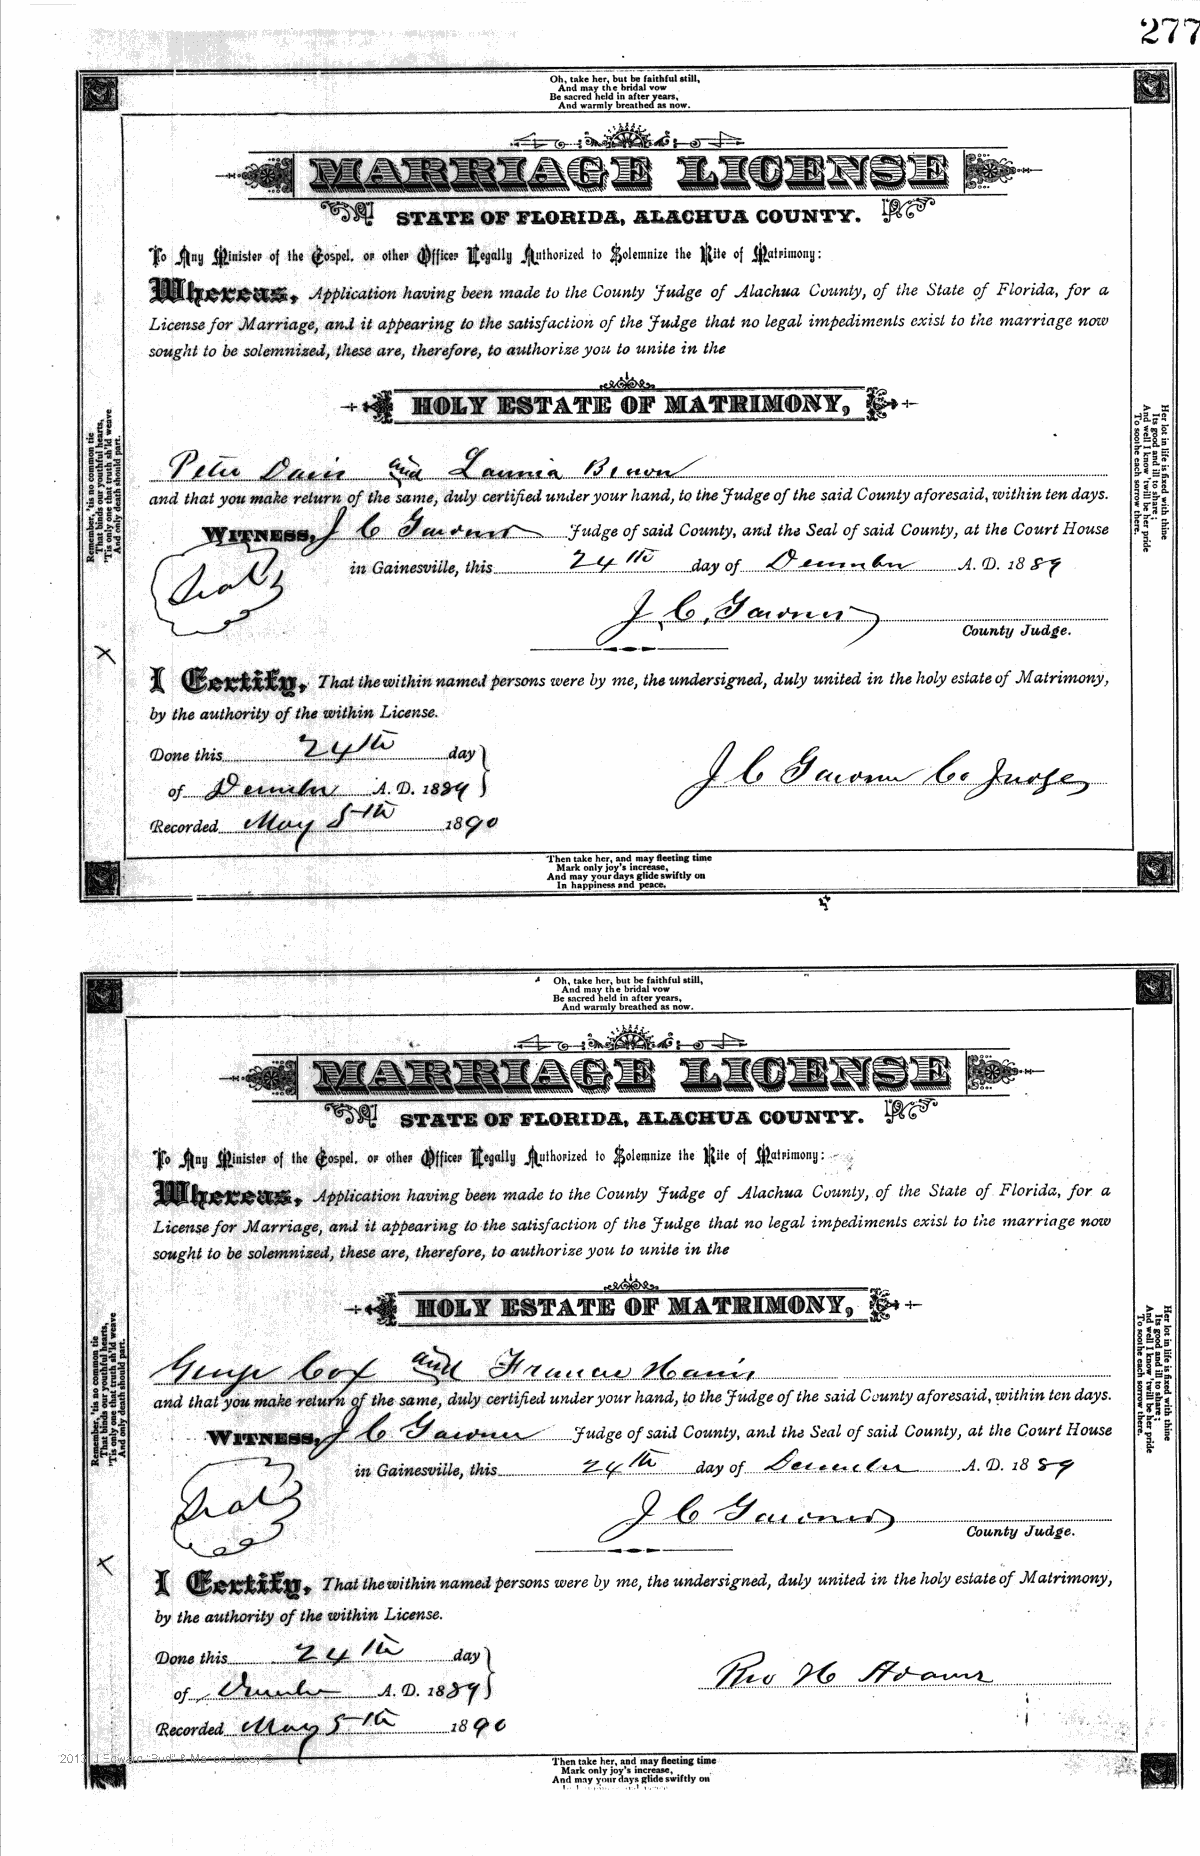 277
Oh, take her, but be faithful still,
And may the bridal vow
Be sacred held in after years,
And warmly breathed as now.
MARRIAGE LICENSE
STATE OF FLORIDA, ALACHUA COUNTY.
To Any Minister of the Gospel, or other Officer Legally Authorized to Solemnize the Rite of Matrimony:
Whereas, Application having been made to the County Judge of Alachua County, of the State of Florida, for a
License for Marriage, and it appearing to the satisfaction of the Judge that no legal impediments exist to the marriage now
sought to be solemnized, these are, therefore, to authorize you to unite in the
HOLY ESTATE OF MATRIMONY,
Peter Davis and Brown
and that you make return of the same, duly certified under your hand, to the Judge of the said County aforesaid, within ten days.
WITNESS, J C Gardner Judge of said County, and the Seal of said County, at the Court House
Seal
in Gainesville, this 24th day of December A. D. 1889
J. C. Gardner
County Judge.
I Certify, That the within named persons were by me, the undersigned, duly united in the holy estate of Matrimony,
by the authority of the within License.
Done this 24th day
of December A. D. 1889
J C Gardner Co Judge
Recorded May 5th 1890
Remember, 'tis no common tie
That binds our youthful hearts,
'Tis only one that truth sh'ld weave
And only death should part.
Her lot in life is fixed with thine
Its good and ill to share;
And well I know 'twill be her pride
To soothe each sorrow there.
X
Then take her, and may fleeting time
Mark only joy's increase,
And may your days glide swiftly on
In happiness and peace.
Oh, take her, but be faithful still,
And may the bridal vow
Be sacred held in after years,
And warmly breathed as now.
MARRIAGE LICENSE
STATE OF FLORIDA, ALACHUA COUNTY.
To Any Minister of the Gospel, or other Officer Legally Authorized to Solemnize the Rite of Matrimony:
Whereas, Application having been made to the County Judge of Alachua County, of the State of Florida, for a
License for Marriage, and it appearing to the satisfaction of the Judge that no legal impediments exist to the marriage now
sought to be solemnized, these are, therefore, to authorize you to unite in the
HOLY ESTATE OF MATRIMONY,
George Cox and Francis Harris
and that you make return of the same, duly certified under your hand, to the Judge of the said County aforesaid, within ten days.
WITNESS, J C Gardner Judge of said County, and the Seal of said County, at the Court House
Seal
in Gainesville, this 24th day of December A. D. 1889
J C Gardner
County Judge.
I Certify, That the within named persons were by me, the undersigned, duly united in the holy estate of Matrimony,
by the authority of the within License.
Done this 24th day
of December A. D. 1889
Rev H Adams
Recorded May 5th 1890
Remember, 'tis no common tie
That binds our youthful hearts,
'Tis only one that truth sh'ld weave
And only death should part.
Her lot in life is fixed with thine
Its good and ill to share;
And well I know 'twill be her pride
To soothe each sorrow there.
X
2013 J Edward "Bud" & Marion Josey ©
Then take her, and may fleeting time
Mark only joy's increase,
And may your days glide swiftly on